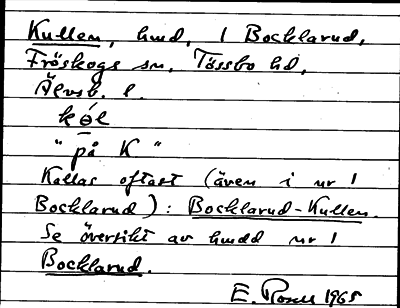 Kullen, hmd, 1 Bocklarud,
Fröskogs sn, Tössbo hd,
Älvsb. l.
"på K"
Kallas oftast (även i nr 1
Bocklarud): Bocklarud-Kullen.
Se översikt av hmdd nr 1
Bocklarud.
E. 1965